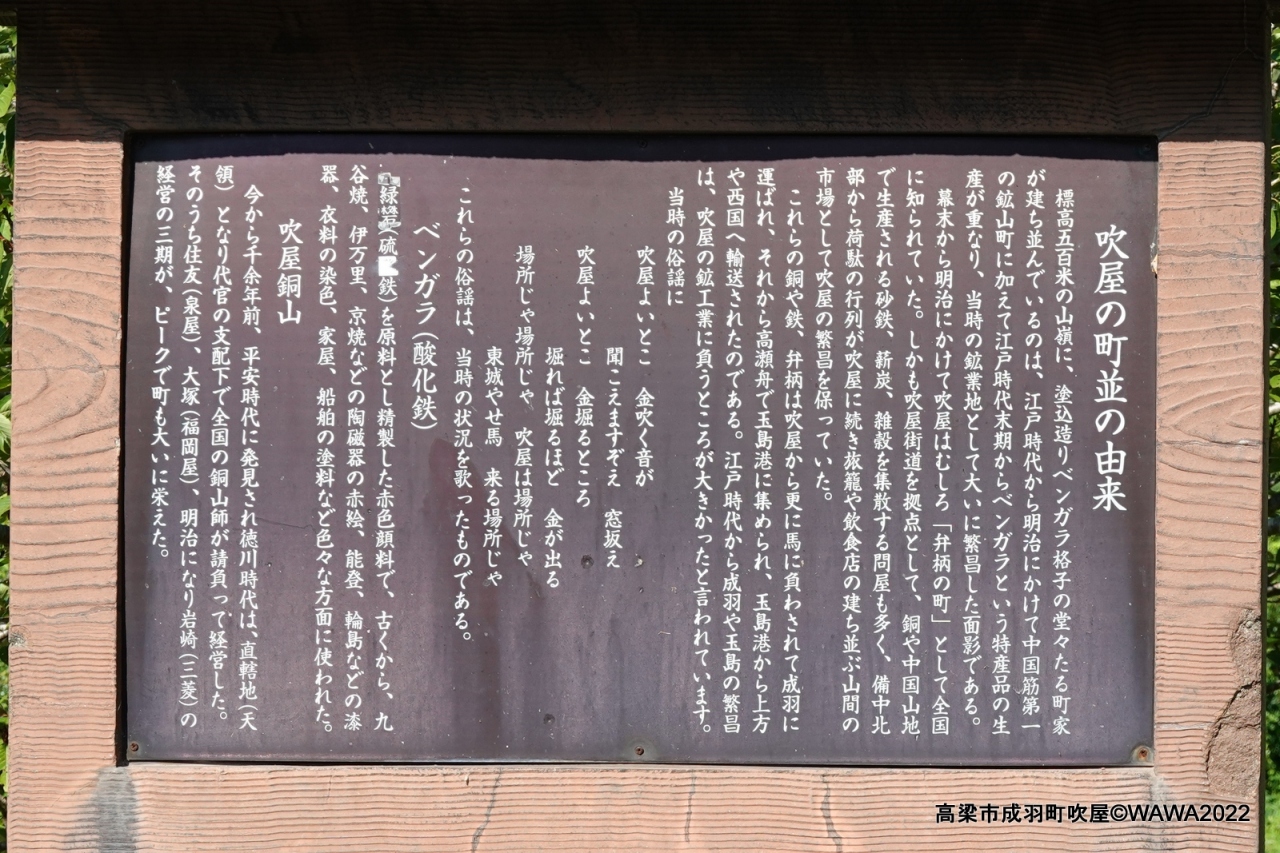 吹屋の町並の由来
標高五百米の山嶺に、塗込造りベンガラ格子の堂々たる町家
が建ち並んでいるのは、江戸時代から明治にかけて中国筋第一
の鉱山町に加えて江戸時代末期からベンガラという特産品の生
産が重なり、当時の鉱業地として大いに繁昌した面影である。
幕末から明治にかけて吹屋はむしろ「弁柄の町」として全国
に知られていた。しかも吹屋街道を拠点として、銅や中国山地
で生産される砂鉄、薪炭、雑穀を集散する問屋も多く、備中北
部から荷駄の行列が吹屋に続き旅籠や飲食店の建ち並ぶ山間の
市場として吹屋の繁昌を保っていた。
これらの銅や鉄、弁柄は吹屋から更に馬に負わされて成羽に
運ばれ、それから高瀬舟で玉島港に集められ、玉島港から上方
や西国へ輸送されたのである。江戸時代から成羽や玉島の繁昌
は、吹屋の鉱工業に負うところが大きかったと言われています。
当時の俗謡に
吹屋よいとこ 金吹く音が
聞こえますぞえ 窓坂え
吹屋よいとこ 金堀るところ
堀れば堀るほど 金が出る
場所じゃ場所じゃ 吹屋は場所じゃ
東城やせ馬 来る場所じゃ
これらの俗謡は、当時の状況を歌ったものである。
ベンガラ(酸化鉄)
緑礬(硫 鉄)を原料とし精製した赤色顔料で、古くから、九
谷焼、伊万里、京焼などの陶磁器の赤絵、能登、輪島などの漆
器、衣料の染色、家屋、船舶の塗料など色々な方面に使われた。
吹屋銅山
今から千余年前、平安時代に発見され徳川時代は、直轄地(天
領)となり代官の支配下で全国の銅山師が請負って経営した。
そのうち住友(泉屋)、大塚(福岡屋)、明治になり岩崎(三菱)の
経営の三期が、ピークで町も大いに栄えた。
高梁市成羽町吹屋©WAWA2022